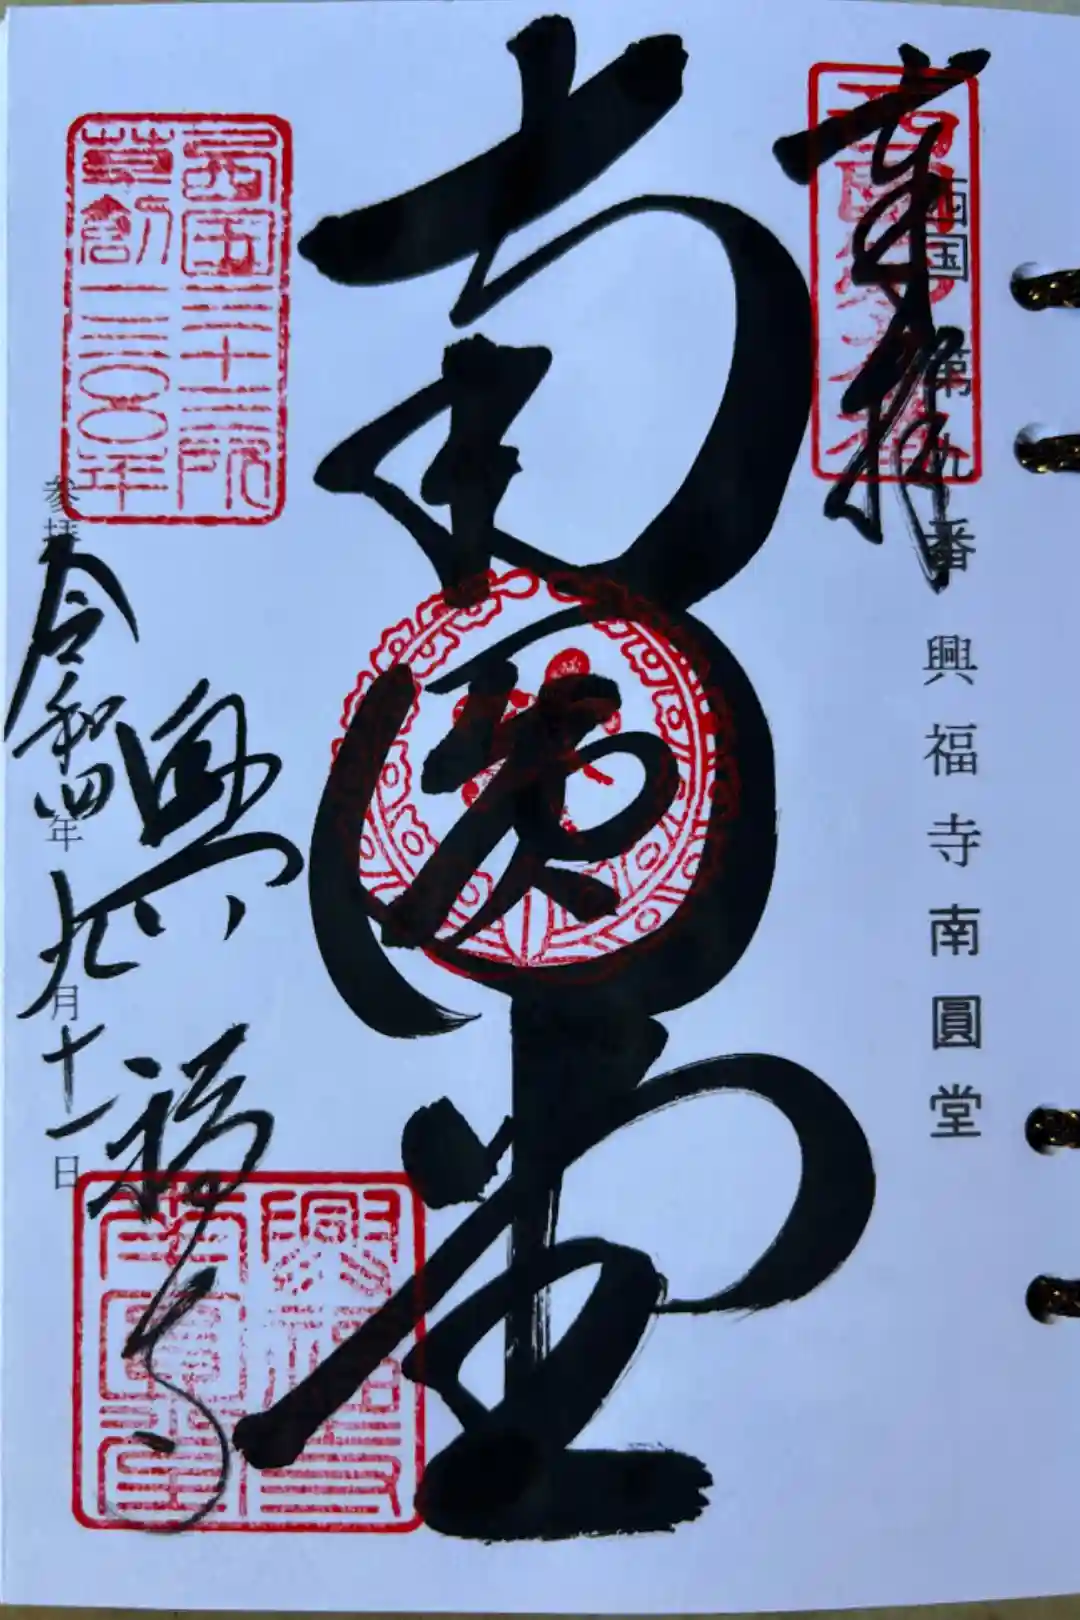 奉拝
西国第九番
西国 第九番 興福寺南圓堂
南圓堂
西国三十三所
草創一三〇〇年
興福寺
参拝
令和四年九月十一日
興福寺
南圓堂